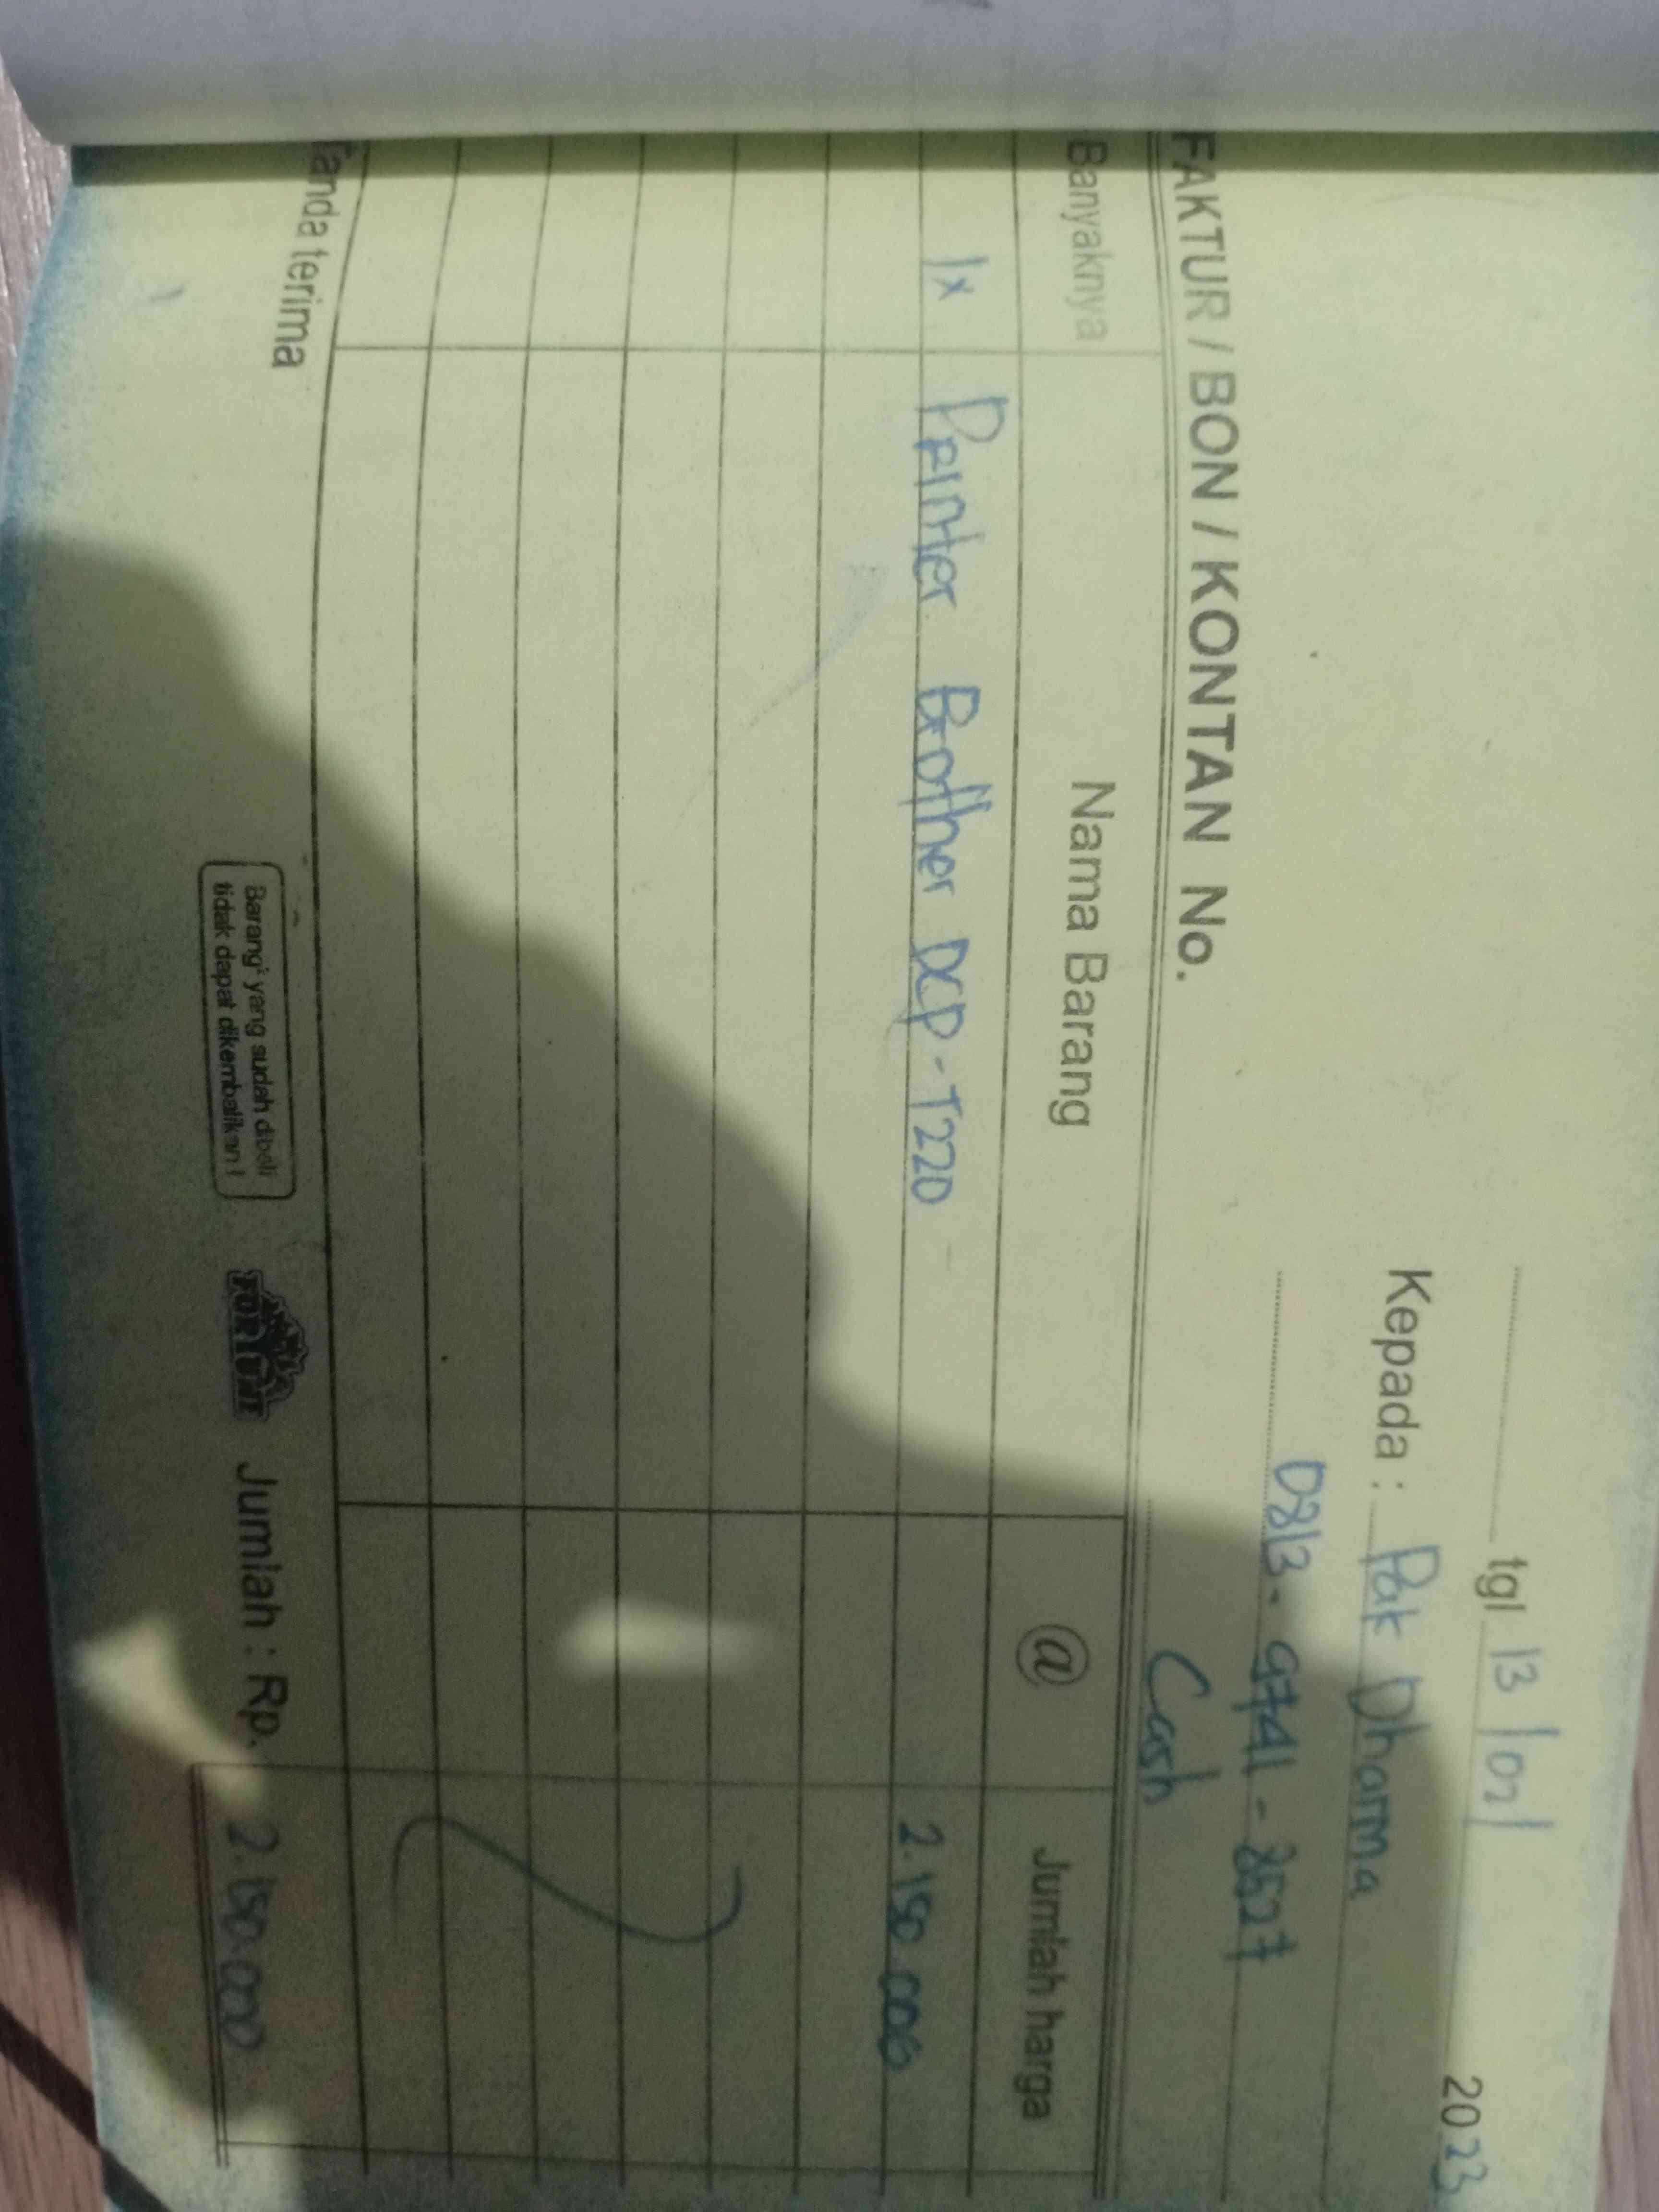 tgl 13/02/ 2023
Kepada : Pak Dharma
0813-9741-2527
Cash
FAKTUR / BON / KONTAN No.
Banyaknya Nama Barang @ Jumlah harga
1x Printer Brother DCP-T220 2.150.000
Tanda terima
Barang² yang sudah dibeli
tidak dapat dikembalikan !
FORTUNE
Jumlah : Rp. 2.150.000